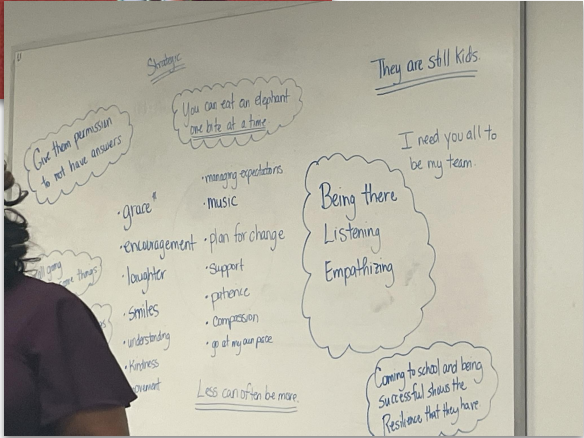 Strategic
They are still kids.
You can eat an elephant
one bite at a time
Give them permission
to not have answers
I need you all to
be my team.
• grace*
• encouragement
• laughter
• smiles
• understanding
• Kindness
• managing expectations
• music
• plan for change
• support
• patience
• compassion
• go at my own pace
Being there
Listening
Empathizing
going
things
Less can often be more.
Coming to school and being
successful shows the
Resilience that they have